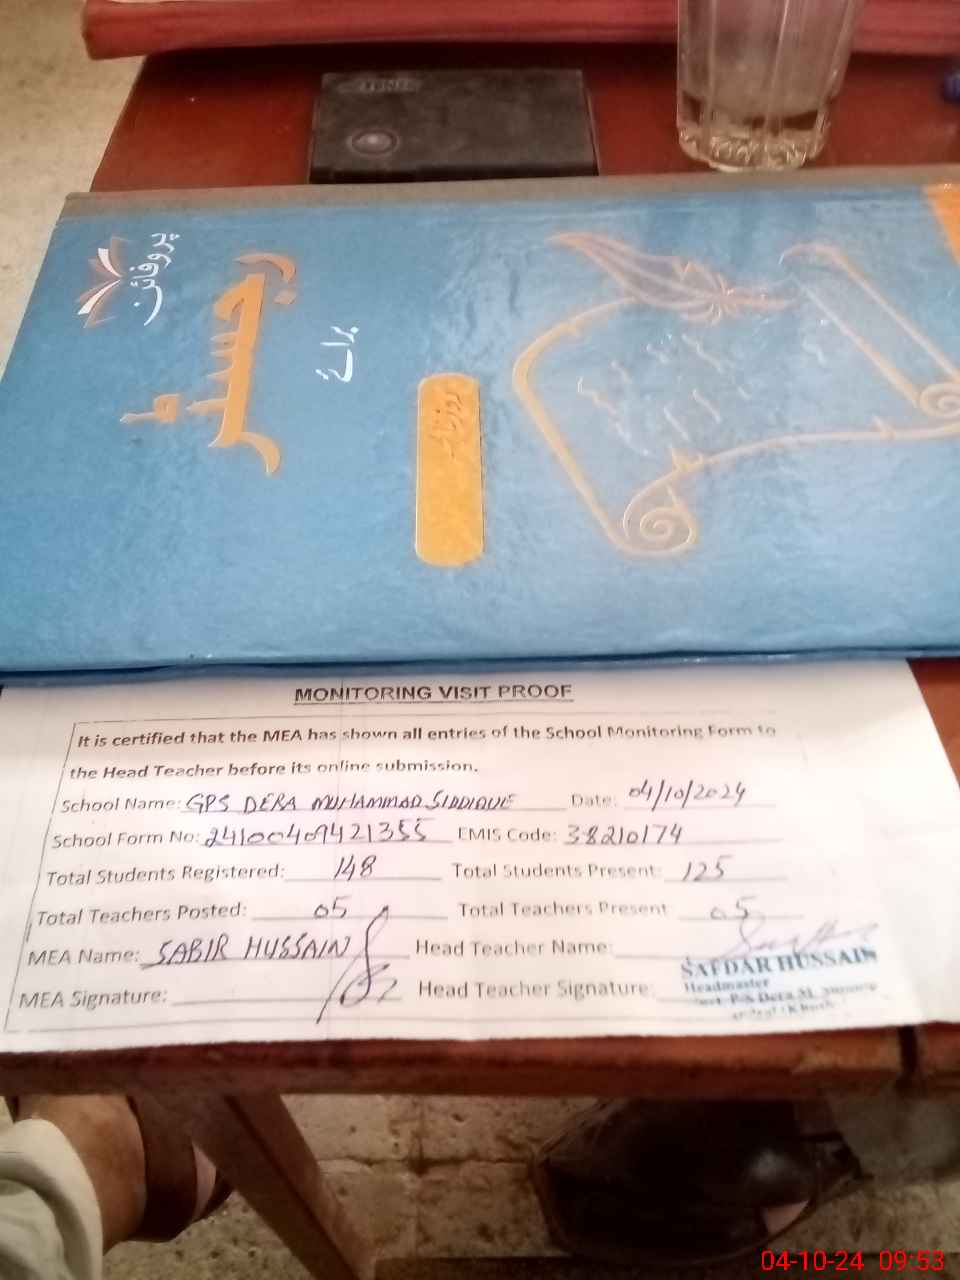 پروفائن
رجسٹر
برائے
MONITORING VISIT PROOF
It is certified that the MEA has shown all entries of the School Monitoring Form to
the Head Teacher before its online submission.
School Name: GPS DERA MUHAMMAD SIDDIQUE Date: 04/10/2024
School Form No: 24100409421355 EMIS Code: 38210174
Total Students Registered: 148 Total Students Present: 125
Total Teachers Posted: 05 Total Teachers Present 05
MEA Name: SABIR HUSSAIN Head Teacher Name:
SAFDAR HUSSAIN
MEA Signature: Head Teacher Signature:
Headmaster
P/S Dera M.
04-10-24 09:53